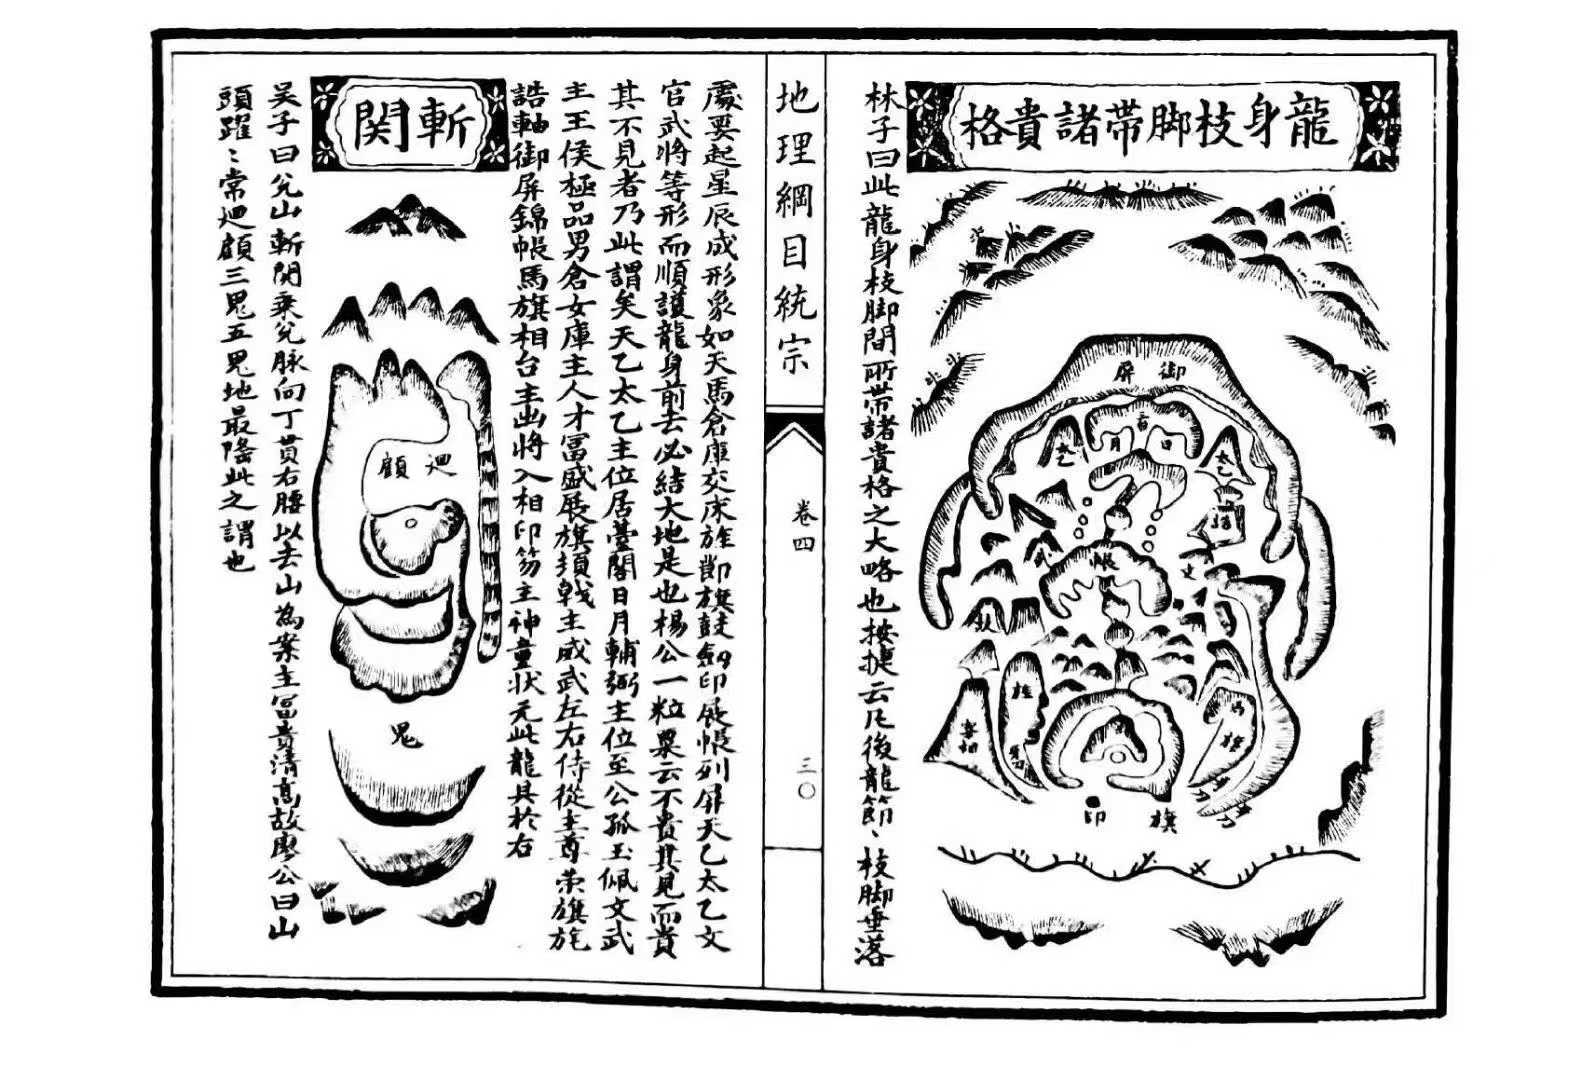 龍身枝脚帶諸貴格
林子曰此龍身枝脚間所帶諸貴格之大略也按捷云凡後龍節〻枝脚垂落
御屏
日月
太乙
太乙
帳
旗
印
地理綱目統宗
卷四
三〇
處要起星辰成形象如天馬倉庫交床旌節旗鼓劍印展帳列屏天乙太乙文
官武將等形而順護龍身前去必結大地是也楊公一粒粟云不貴其見而貴
其不見者乃此謂矣天乙太乙主位居臺閣日月輔弼主位至公孤玉佩文武
主王侯極品男倉女庫主人才富盛展旗頓戟主威武左右侍從主尊荣旗旄
誥軸御屏錦帳馬旗相台主出將入相印笏主神童狀元此龍具於右
斬関
廻顧
鬼
吳子曰兌山斬関乗兌脉向丁貫右腰以去山為案主冨貴清高故廖公曰山
頭躍〻常廻顧三鬼五鬼地最隆此之謂也